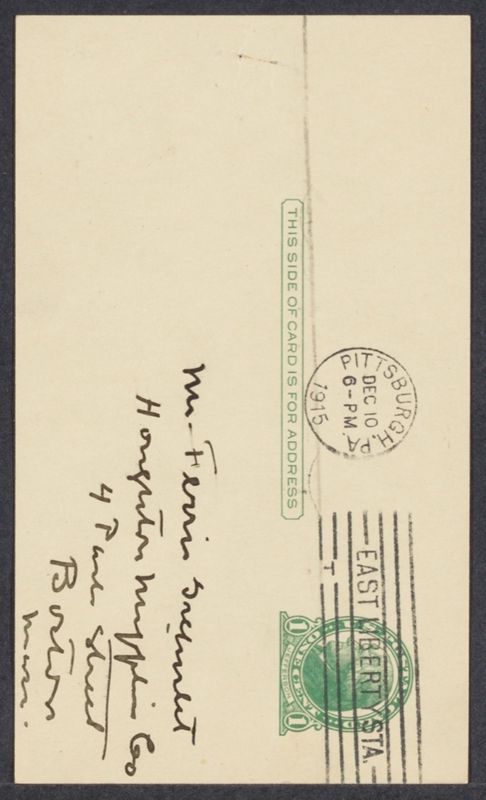 PITTSBURGH, PA.
DEC 10
6-PM
1915
EAST LIBERTY STA.
T
THIS SIDE OF CARD IS FOR ADDRESS
1 1
Mr. Ferris Greenslet
Houghton Mifflin Co
4 Park Street
Boston
Mass.